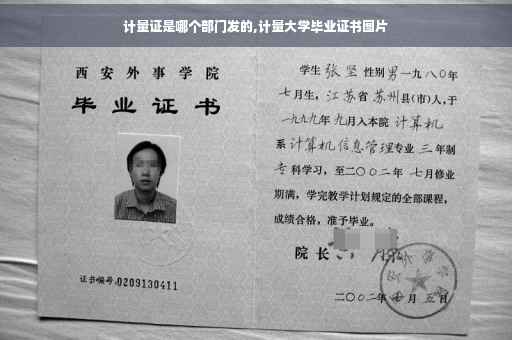 计量证是哪个部门发的,计量大学毕业证书图片
西安外事学院
毕业证书
证书编号:0209130411
学生 张坚 性别 男 一九八〇年
七月生, 江苏省 苏州 县(市)人,于
一九九九年 九月入本院 计算机
系 计算机信息管理 专业 三 年制
专科学习,至二〇〇二年 七月修业
期满,学完教学计划规定的全部课程,
成绩合格,准予毕业。
院长
二〇〇二年 七月 五日